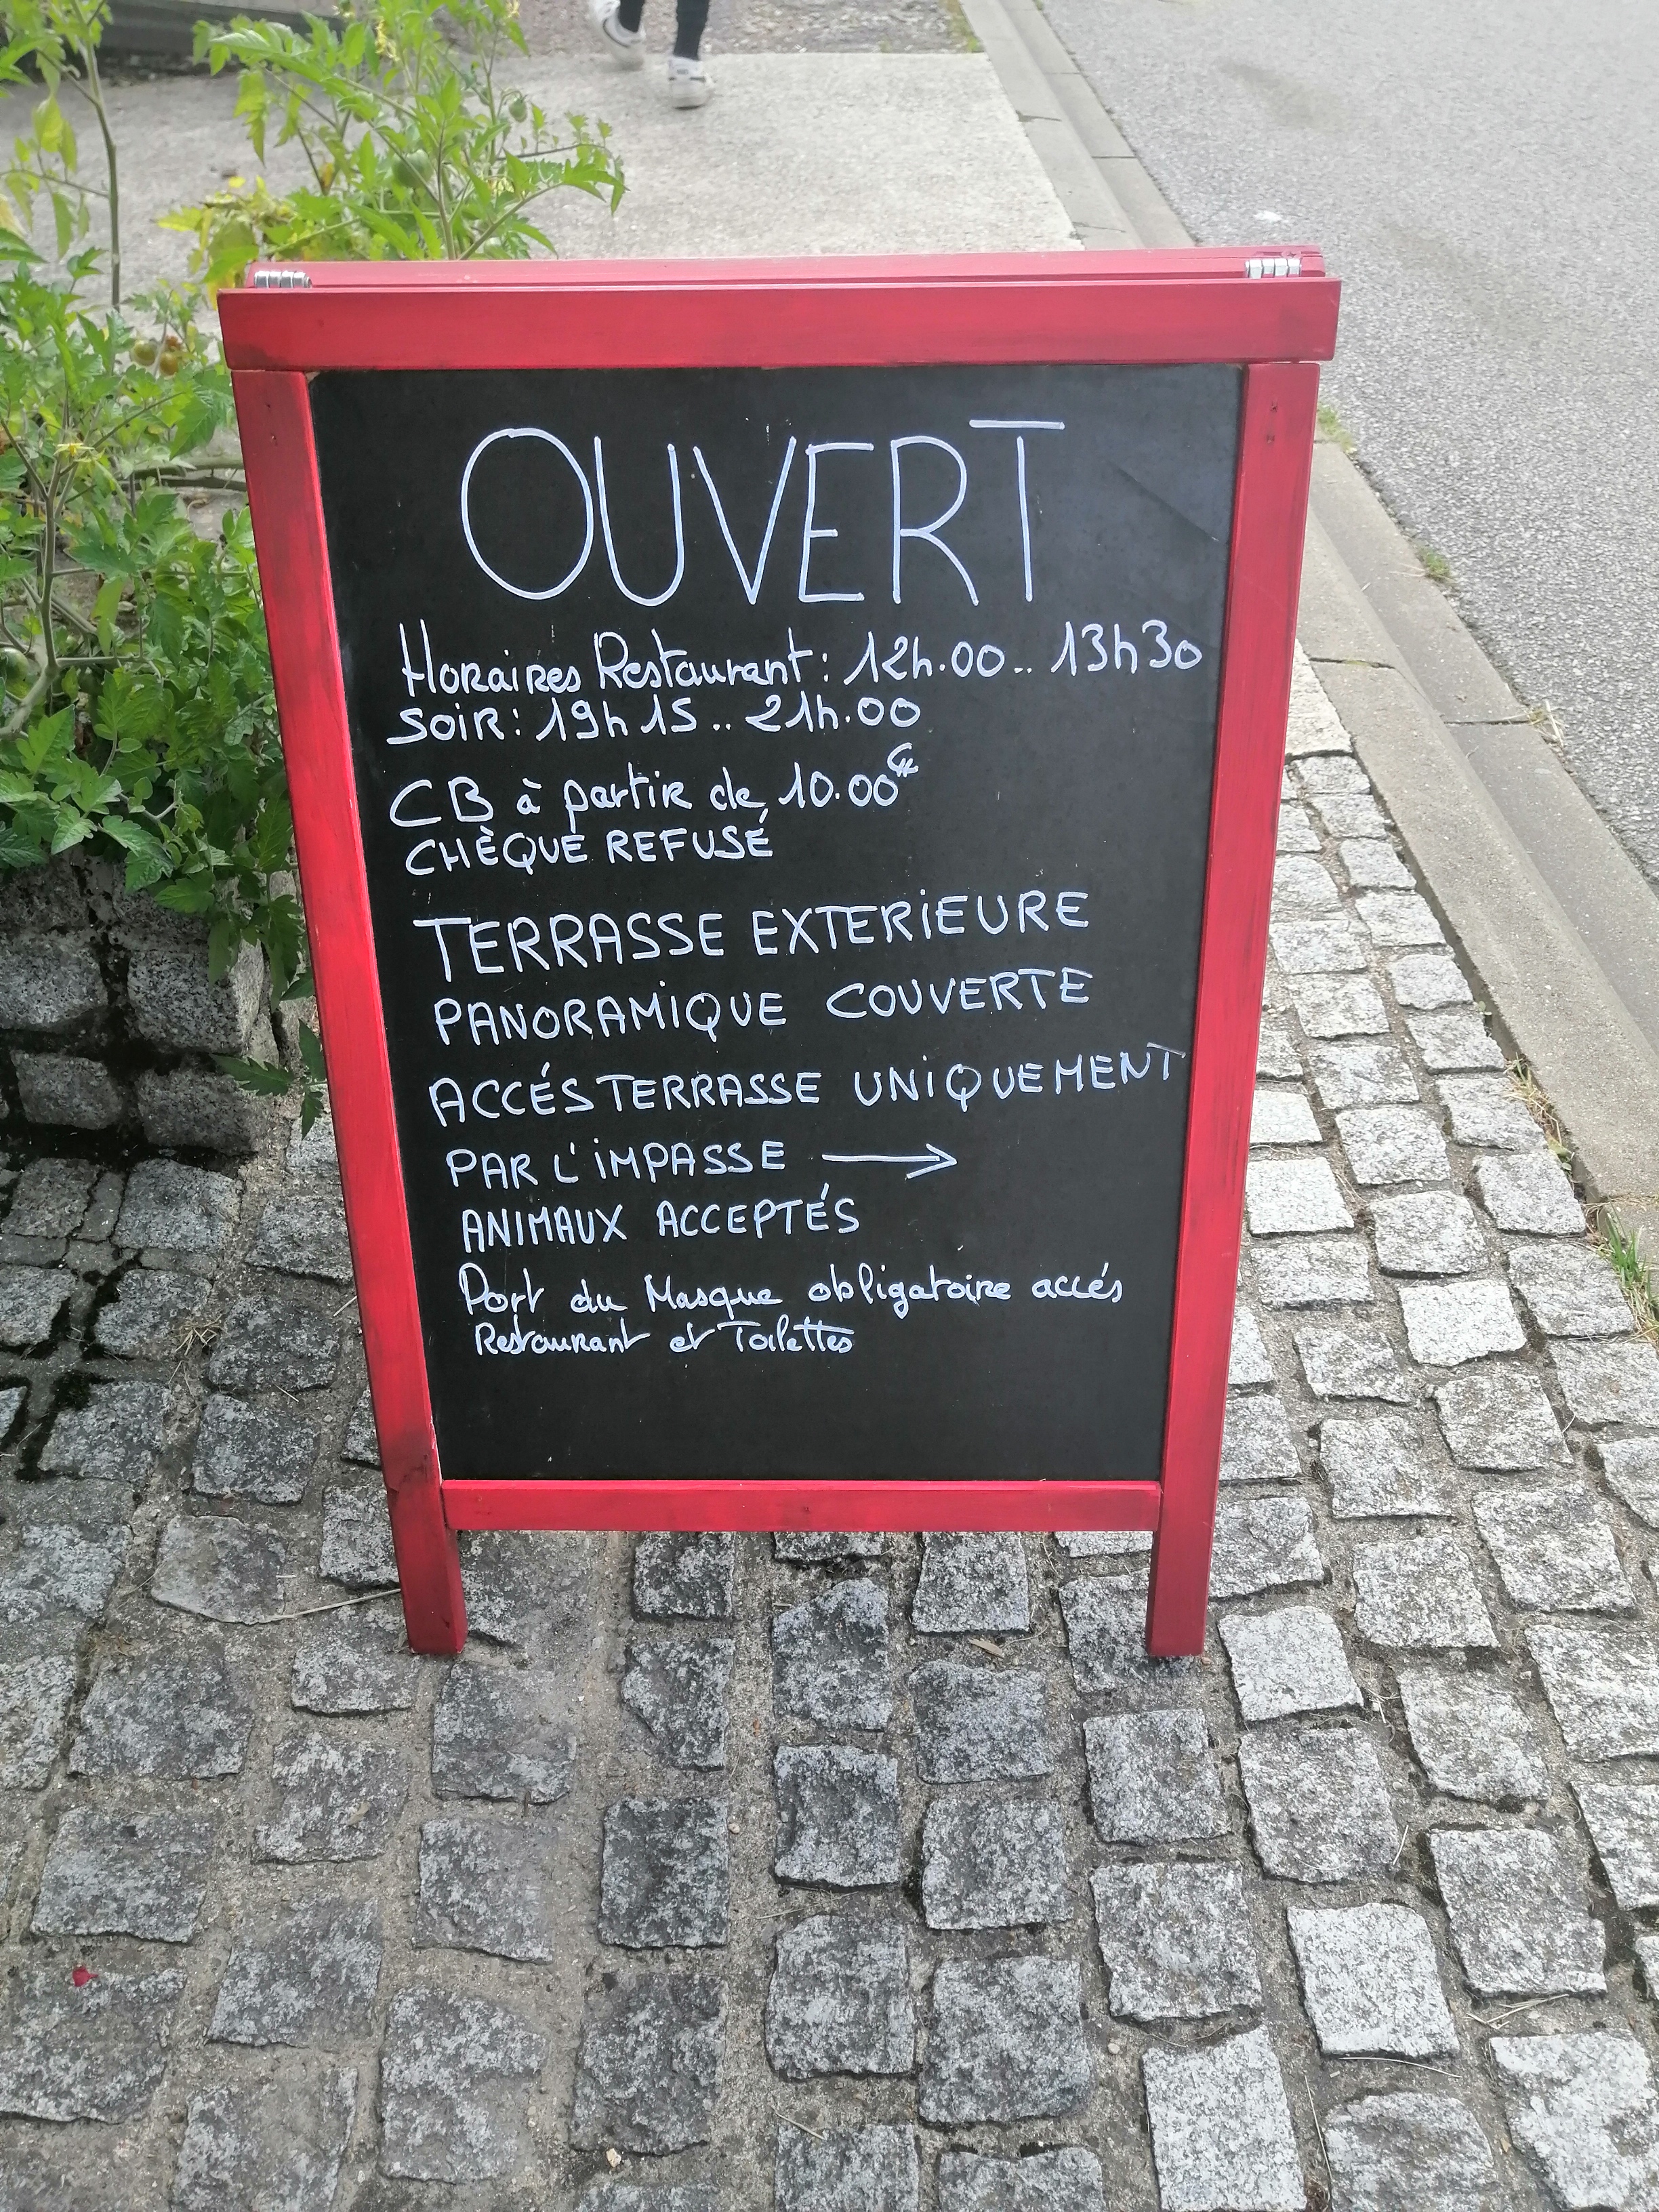 OUVERT
Horaires Restaurant: 12h.00.. 13h30
SOIR: 19h15.. 21h.00
CB à partir de 10.00€
CHÈQUE REFUSÉ
TERRASSE EXTERIEURE
PANORAMIQUE COUVERTE
ACCÉS TERRASSE UNIQUEMENT
PAR L'IMPASSE →
ANIMAUX ACCEPTÉS
Port du Masque obligatoire accés
Restaurant et Toilettes